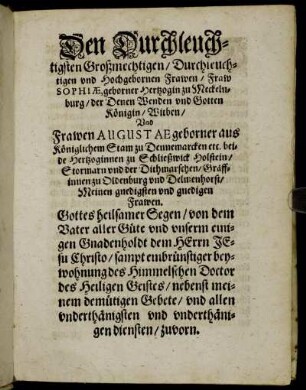 Den Durchleuch-
tigsten Großmechtigen/ Durchleuch-
tigen vnd Hochgebornen Frawen/ Fraw
SOPHIÆ, geborner Hertzogin zu Meckeln-
burg/ der Denen Wenden vnd Gotten
Königin/ Witben/
Vnd
Frawen AUGUSTAE geborner aus
Königlichem Stam zu Dennemarcken etc. bei-
de Hertzoginnen zu Schließwick Holstein/
Stormarn vnd der Dithmarschen/ Gräff-
innen zu Oldenburg vnd Delmenhorst/
Meinen gnedigsten vnd gnedigen
Frawen.
Gottes heilsamer Segen/ von dem
Vater aller Güte vnd vnserm eini-
gen Gnadenholdt dem HErrn JE-
su Christo/ sampt einbrünstiger bey-
wohnung des Himmelschen Doctor
des Heiligen Geistes/ nebenst mei-
nem demütigen Gebete/ vnd allen
vnderthänigsten vnd vnderthäni-
gen diensten/ zuvorn.